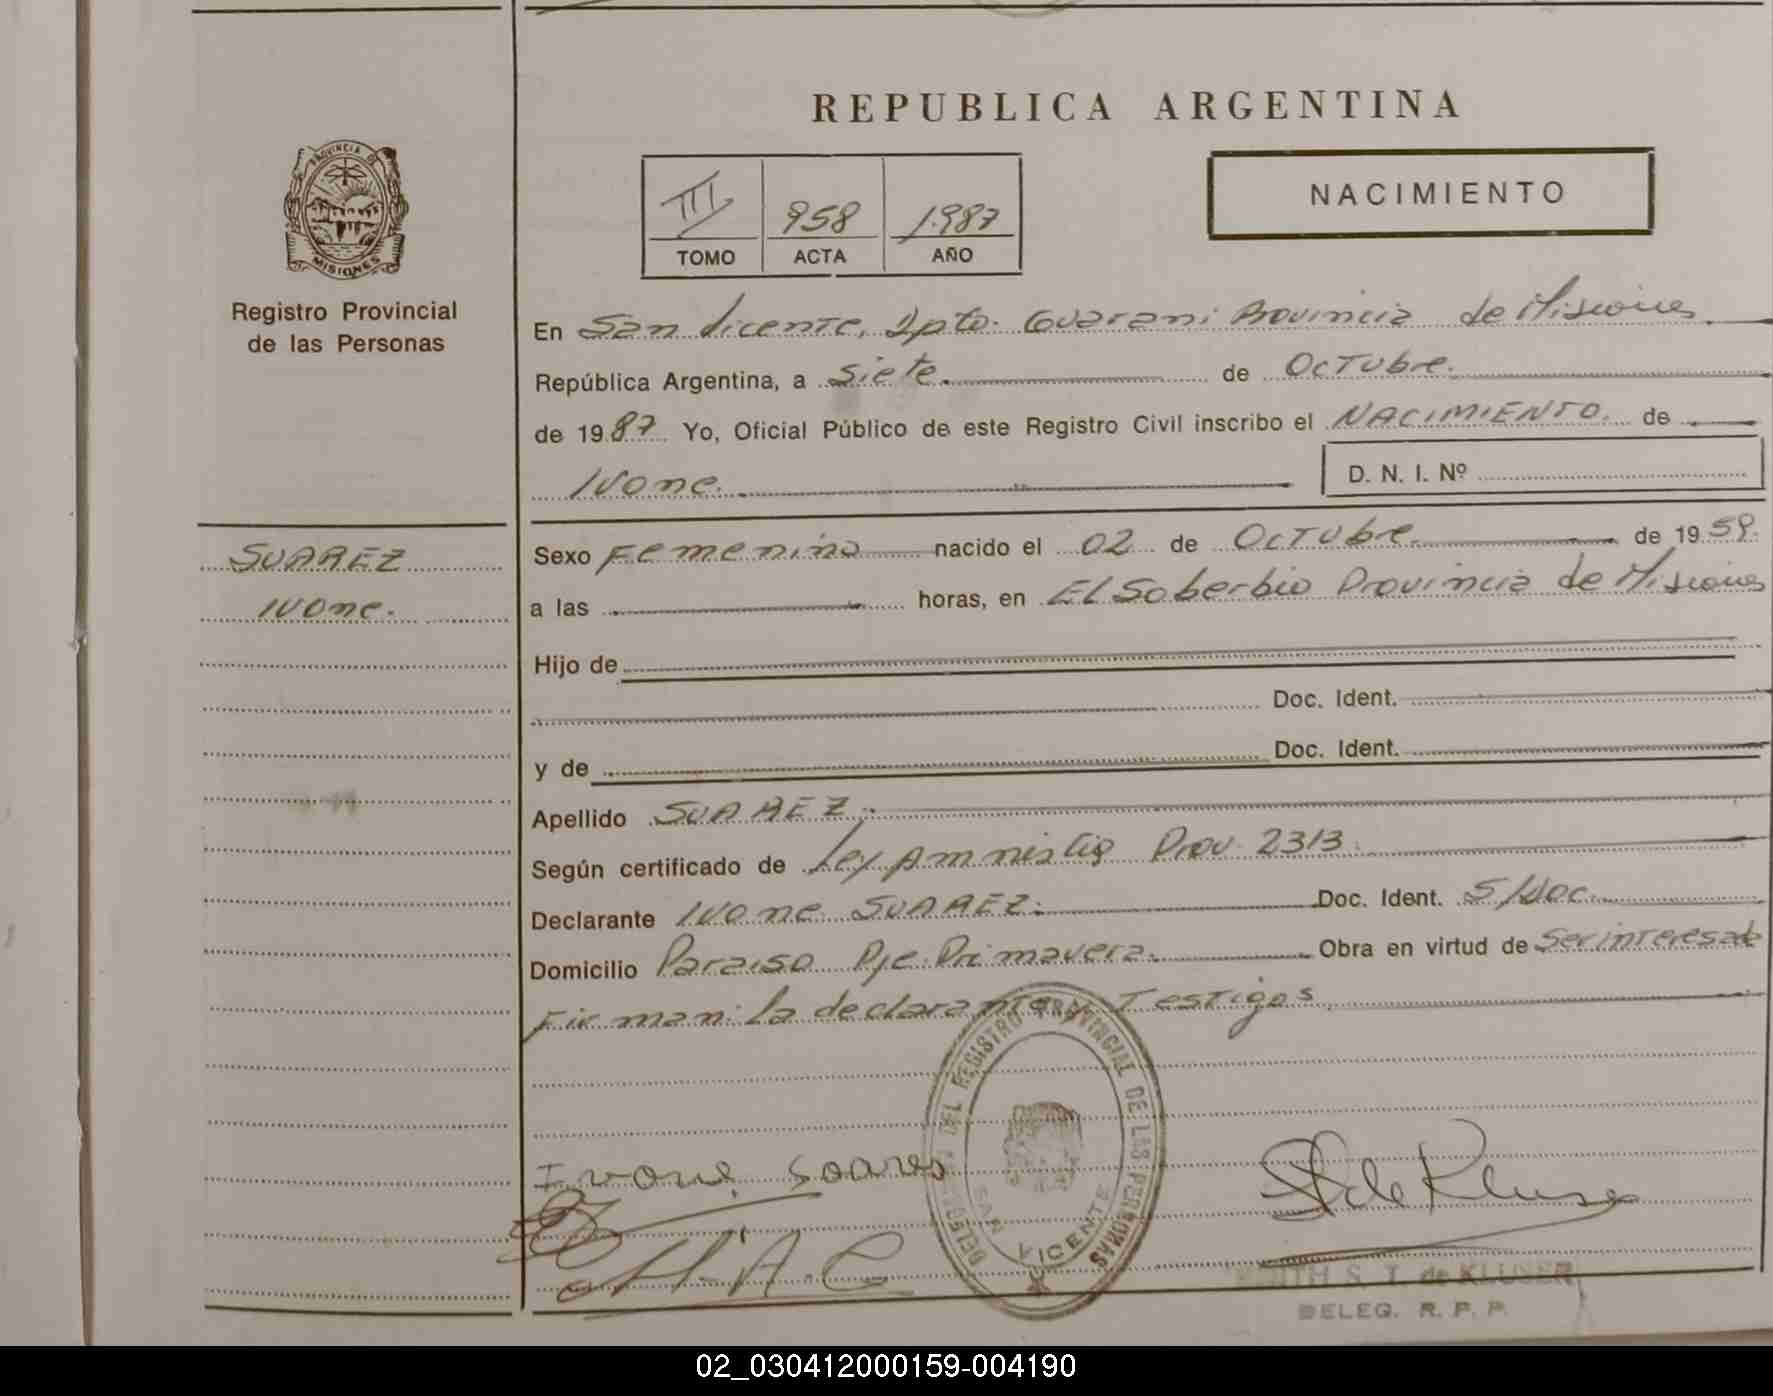 REPUBLICA ARGENTINA
PROVINCIA DE
MISIONES
Registro Provincial
de las Personas
III 958 1.987
TOMO ACTA AÑO
NACIMIENTO
En San Vicente, Dpto. Guarani Provincia de Misiones.
República Argentina, a Siete. de Octubre.
de 19 87 Yo, Oficial Público de este Registro Civil inscribo el NACIMIENTO. de
Ivone.
D. N. I. Nº
SUAREZ
Ivone.
Sexo Femenino nacido el 02 de Octubre. de 19 59.
a las horas, en El Soberbio Provincia de Misiones
Hijo de
Doc. Ident.
y de Doc. Ident.
Apellido SUAREZ.
Según certificado de Ley Amnistia Prov. 2313.
Declarante Ivone SUAREZ. Doc. Ident. S/Doc.
Domicilio Paraiso Pje. Primavera. Obra en virtud de Ser interesada
Firman: La declarante y Testigos.
DEL REGISTRO PROVINCIAL DE LAS PERSONAS
SAN VICENTE
Ivone Soares
H. A. C
S T de Kluser
S. T. de KLUSER
DELEG. R. P. P.
02_030412000159-004190